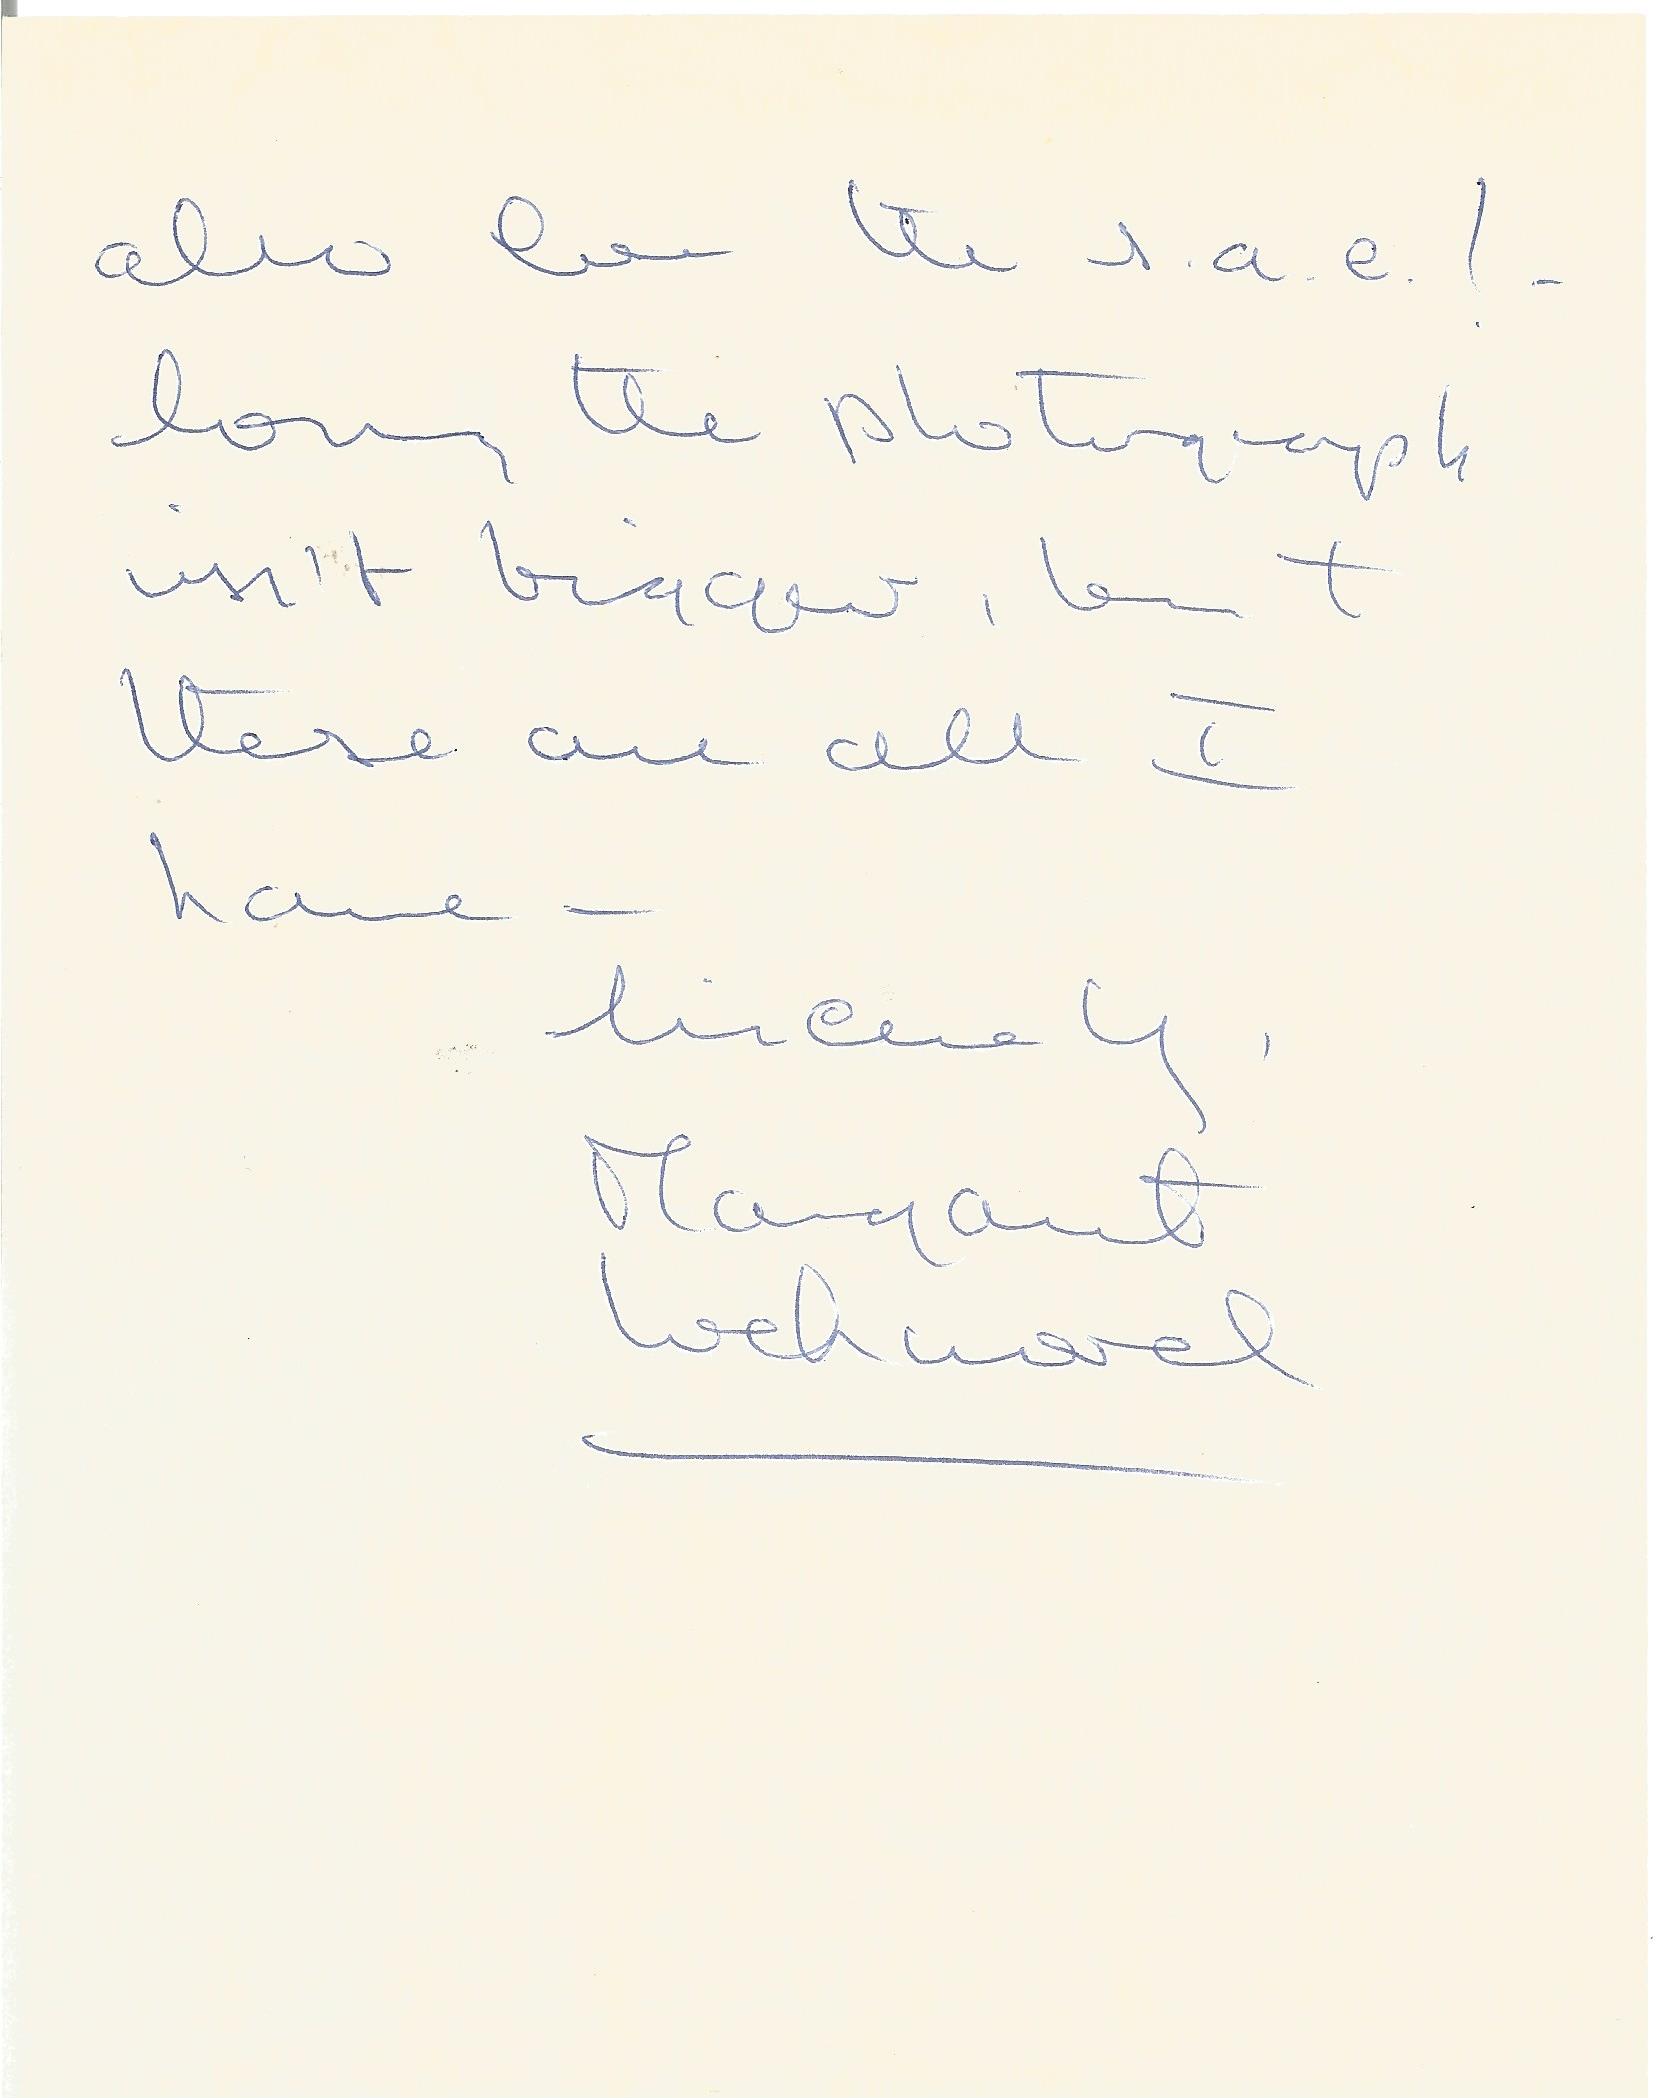 also for the s.a.e.! -
Sorry the photograph
isn't bigger, but
these are all I
have -
Sincerely,
Margaret
Lockwood